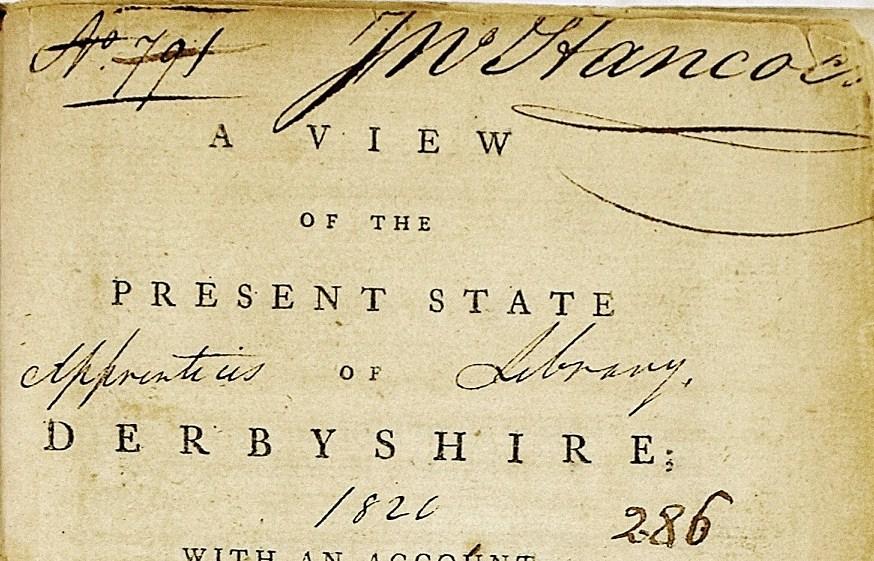 No. 791 Jno Hancoc
A VIEW
OF THE
PRESENT STATE
Apprentices OF Library.
DERBYSHIRE;
1820 286
WITH AN ACCOUNT